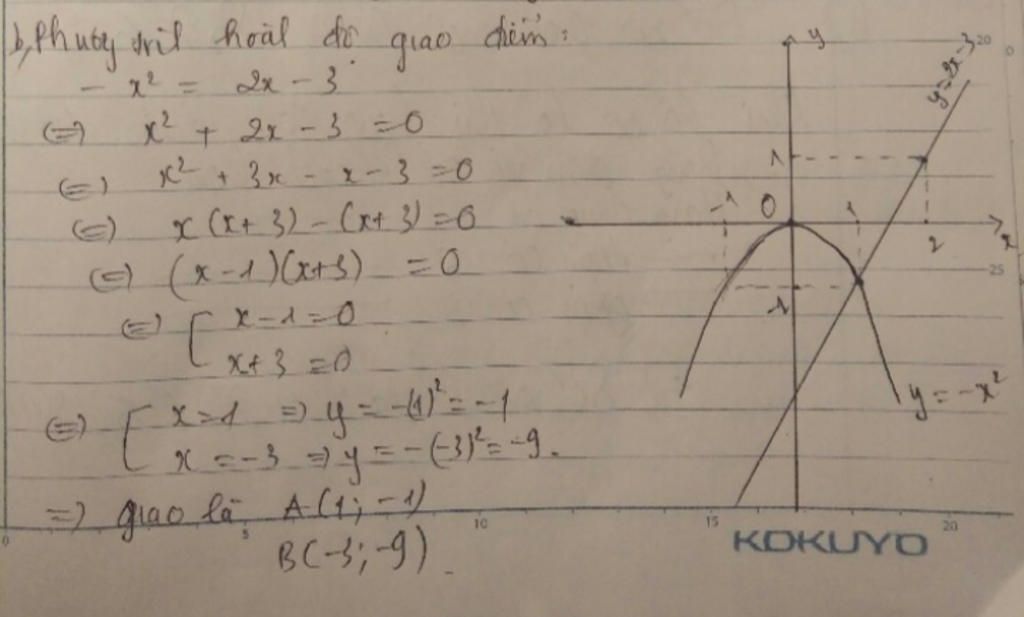 b, Phương trìh hoàh độ giao điểm:
- x² = 2x - 3
(=) x² + 2x - 3 = 0
(=) x² + 3x - x - 3 = 0
(=) x(x+3) - (x+3) = 0
(=) (x-1)(x+3) = 0
(=) [ x-1=0
x+3=0
(=) [ x=1 => y = -(1)² = -1
x = -3 => y = -(-3)² = -9.
=> giao là A(1; -1)
B(-3; -9).
y
y=2x-3
1
-1 0 1 2 x
-1
y = -x²
20
25
0 5 10 15 20
KOKUYO